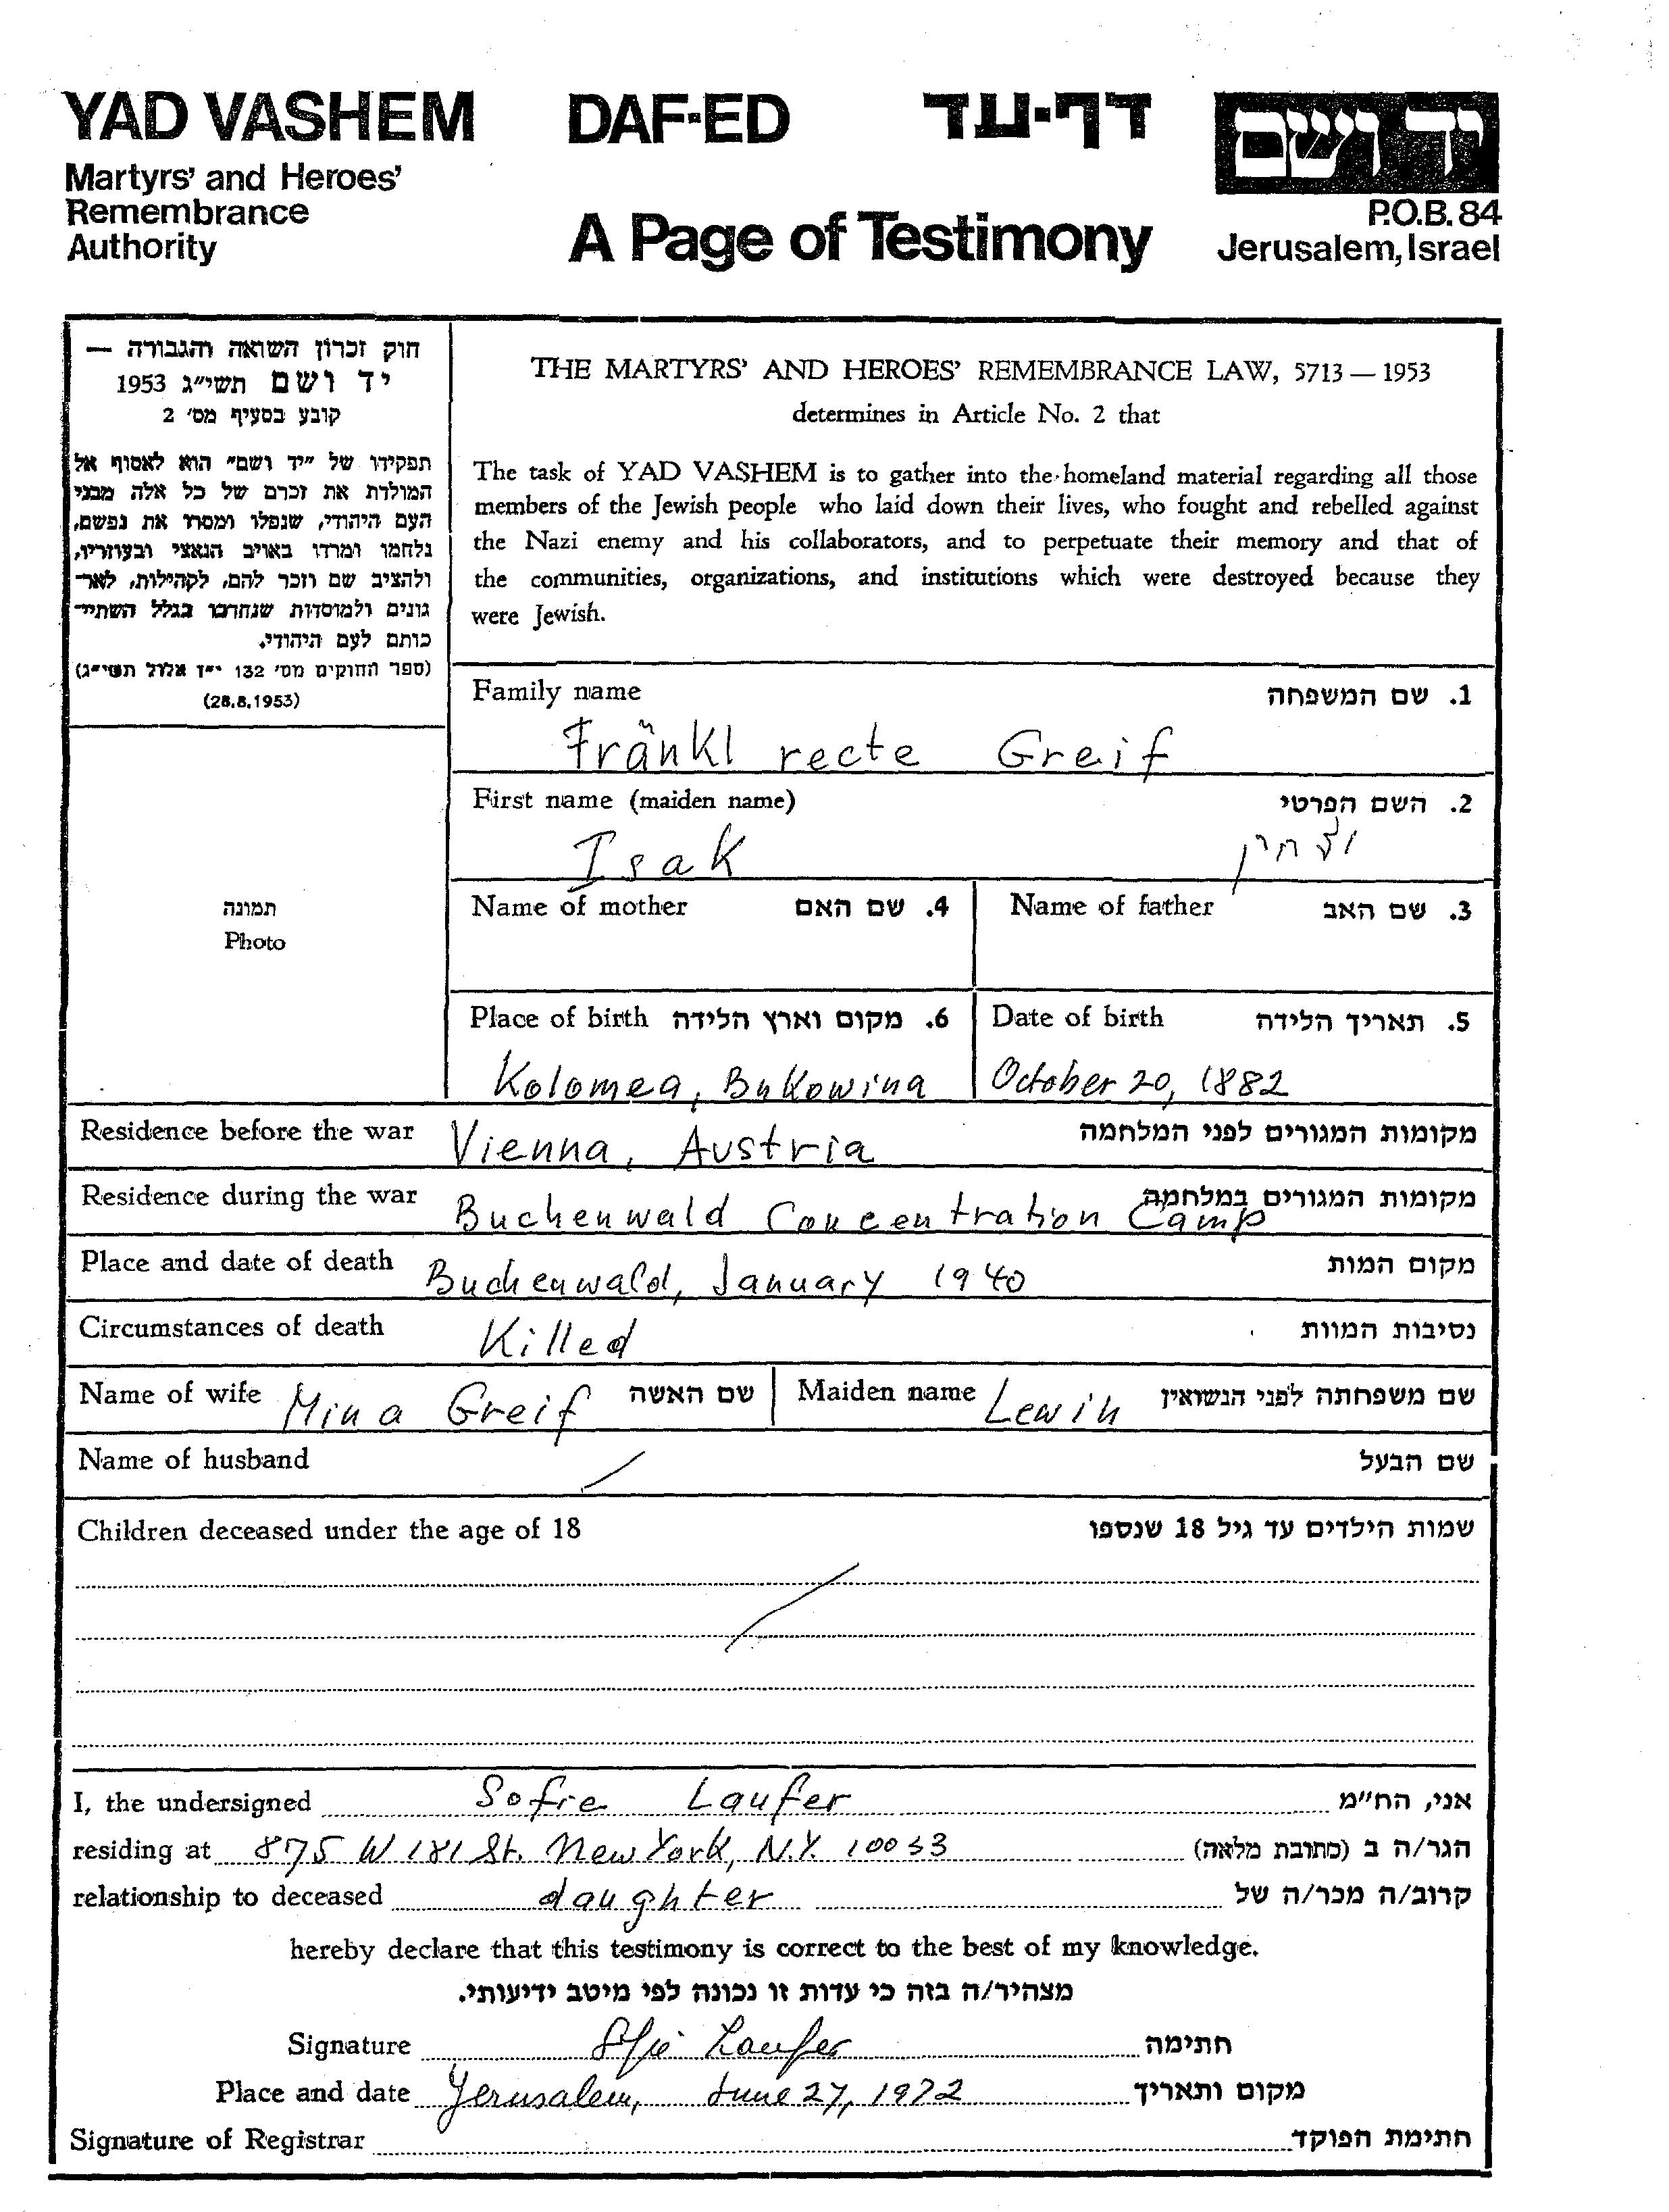 YAD VASHEM DAF-ED דף-עד יד ושם
Martyrs' and Heroes'
Remembrance
Authority
A Page of Testimony
P.O.B. 84
Jerusalem, Israel
חוק זכרון השואה והגבורה —
יד ושם תשי״ג 1953
קובע בסעיף מס׳ 2
תפקידו של ״יד ושם״ הוא לאסוף אל
המולדת את זכרם של כל אלה מבני
העם היהודי, שנפלו ומסרו את נפשם,
נלחמו ומרדו באויב הנאצי ובעוזריו,
ולהציב שם וזכר להם, לקהילות, לאר־
גונים ולמוסדות שנחרבו בגלל השתיי־
כותם לעם היהודי.
(ספר החוקים מס׳ 132 י״ז אלול תשי״ג)
(28.8.1953)
THE MARTYRS' AND HEROES' REMEMBRANCE LAW, 5713 — 1953
determines in Article No. 2 that
The task of YAD VASHEM is to gather into the homeland material regarding all those
members of the Jewish people who laid down their lives, who fought and rebelled against
the Nazi enemy and his collaborators, and to perpetuate their memory and that of
the communities, organizations, and institutions which were destroyed because they
were Jewish.
תמונה
Photo
Family name 1. שם המשפחה
Fränkl recte Greif
First name (maiden name) 2. השם הפרטי
Isak
Name of mother 4. שם האם Name of father 3. שם האב
Place of birth 6. מקום וארץ הלידה Date of birth 5. תאריך הלידה
Kolomea, Bukowina October 20, 1882
Residence before the war Vienna, Austria מקומות המגורים לפני המלחמה
Residence during the war Buchenwald Concentration Camp מקומות המגורים במלחמה
Place and date of death Buchenwald, January 1940 מקום המות
Circumstances of death Killed נסיבות המוות
Name of wife Mina Greif שם האשה Maiden name Lewin שם משפחתה לפני הנשואין
Name of husband / שם הבעל
Children deceased under the age of 18 שמות הילדים עד גיל 18 שנספו
/
I, the undersigned Sofie Laufer אני, הח״מ
residing at 875 W 181 St. New York, N.Y. 10033 הגר/ה ב (כתובת מלאה)
relationship to deceased daughter קרוב/ה מכר/ה של
hereby declare that this testimony is correct to the best of my knowledge.
מצהיר/ה בזה כי עדות זו נכונה לפי מיטב ידיעותי.
Signature Sofie Laufer חתימה
Place and date Jerusalem, June 27, 1972 מקום ותאריך
Signature of Registrar חתימת הפוקד